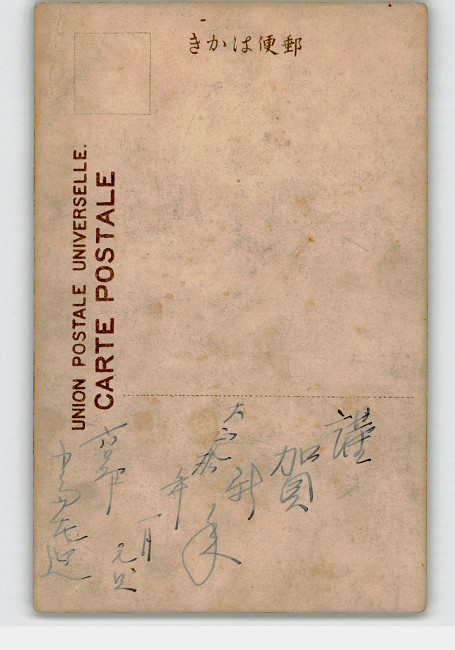 きかは便郵
UNION POSTALE UNIVERSELLE.
CARTE POSTALE
謹
賀
新
年
大正
年
一月
元旦